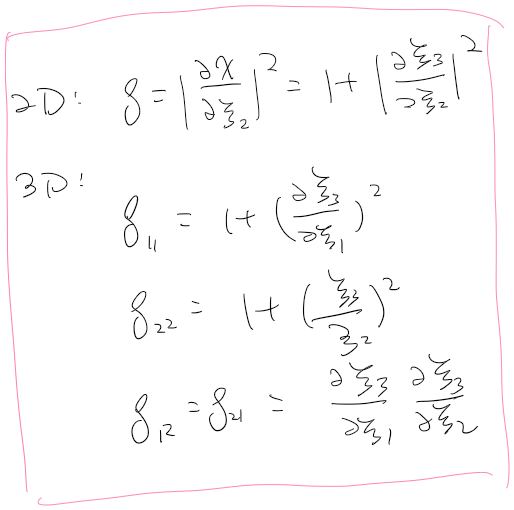 2D: g = |∂X/∂ξ₂|² = 1 + |∂ξ₃/∂ξ₂|²
3D:
g₁₁ = 1 + (∂ξ₃/∂ξ₁)²
g₂₂ = 1 + (ξ₃/ξ₂)²
g₁₂ = g₂₁ = ∂ξ₃/∂ξ₁ ∂ξ₃/∂ξ₂